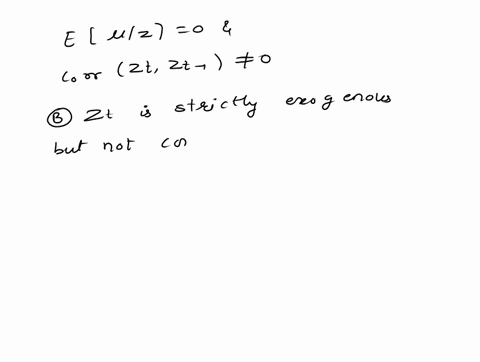 E [ u/z ) = 0 &
Corr (Zt, Zt-1) ≠ 0
Ⓑ Zt is strictly exogenous
but not co